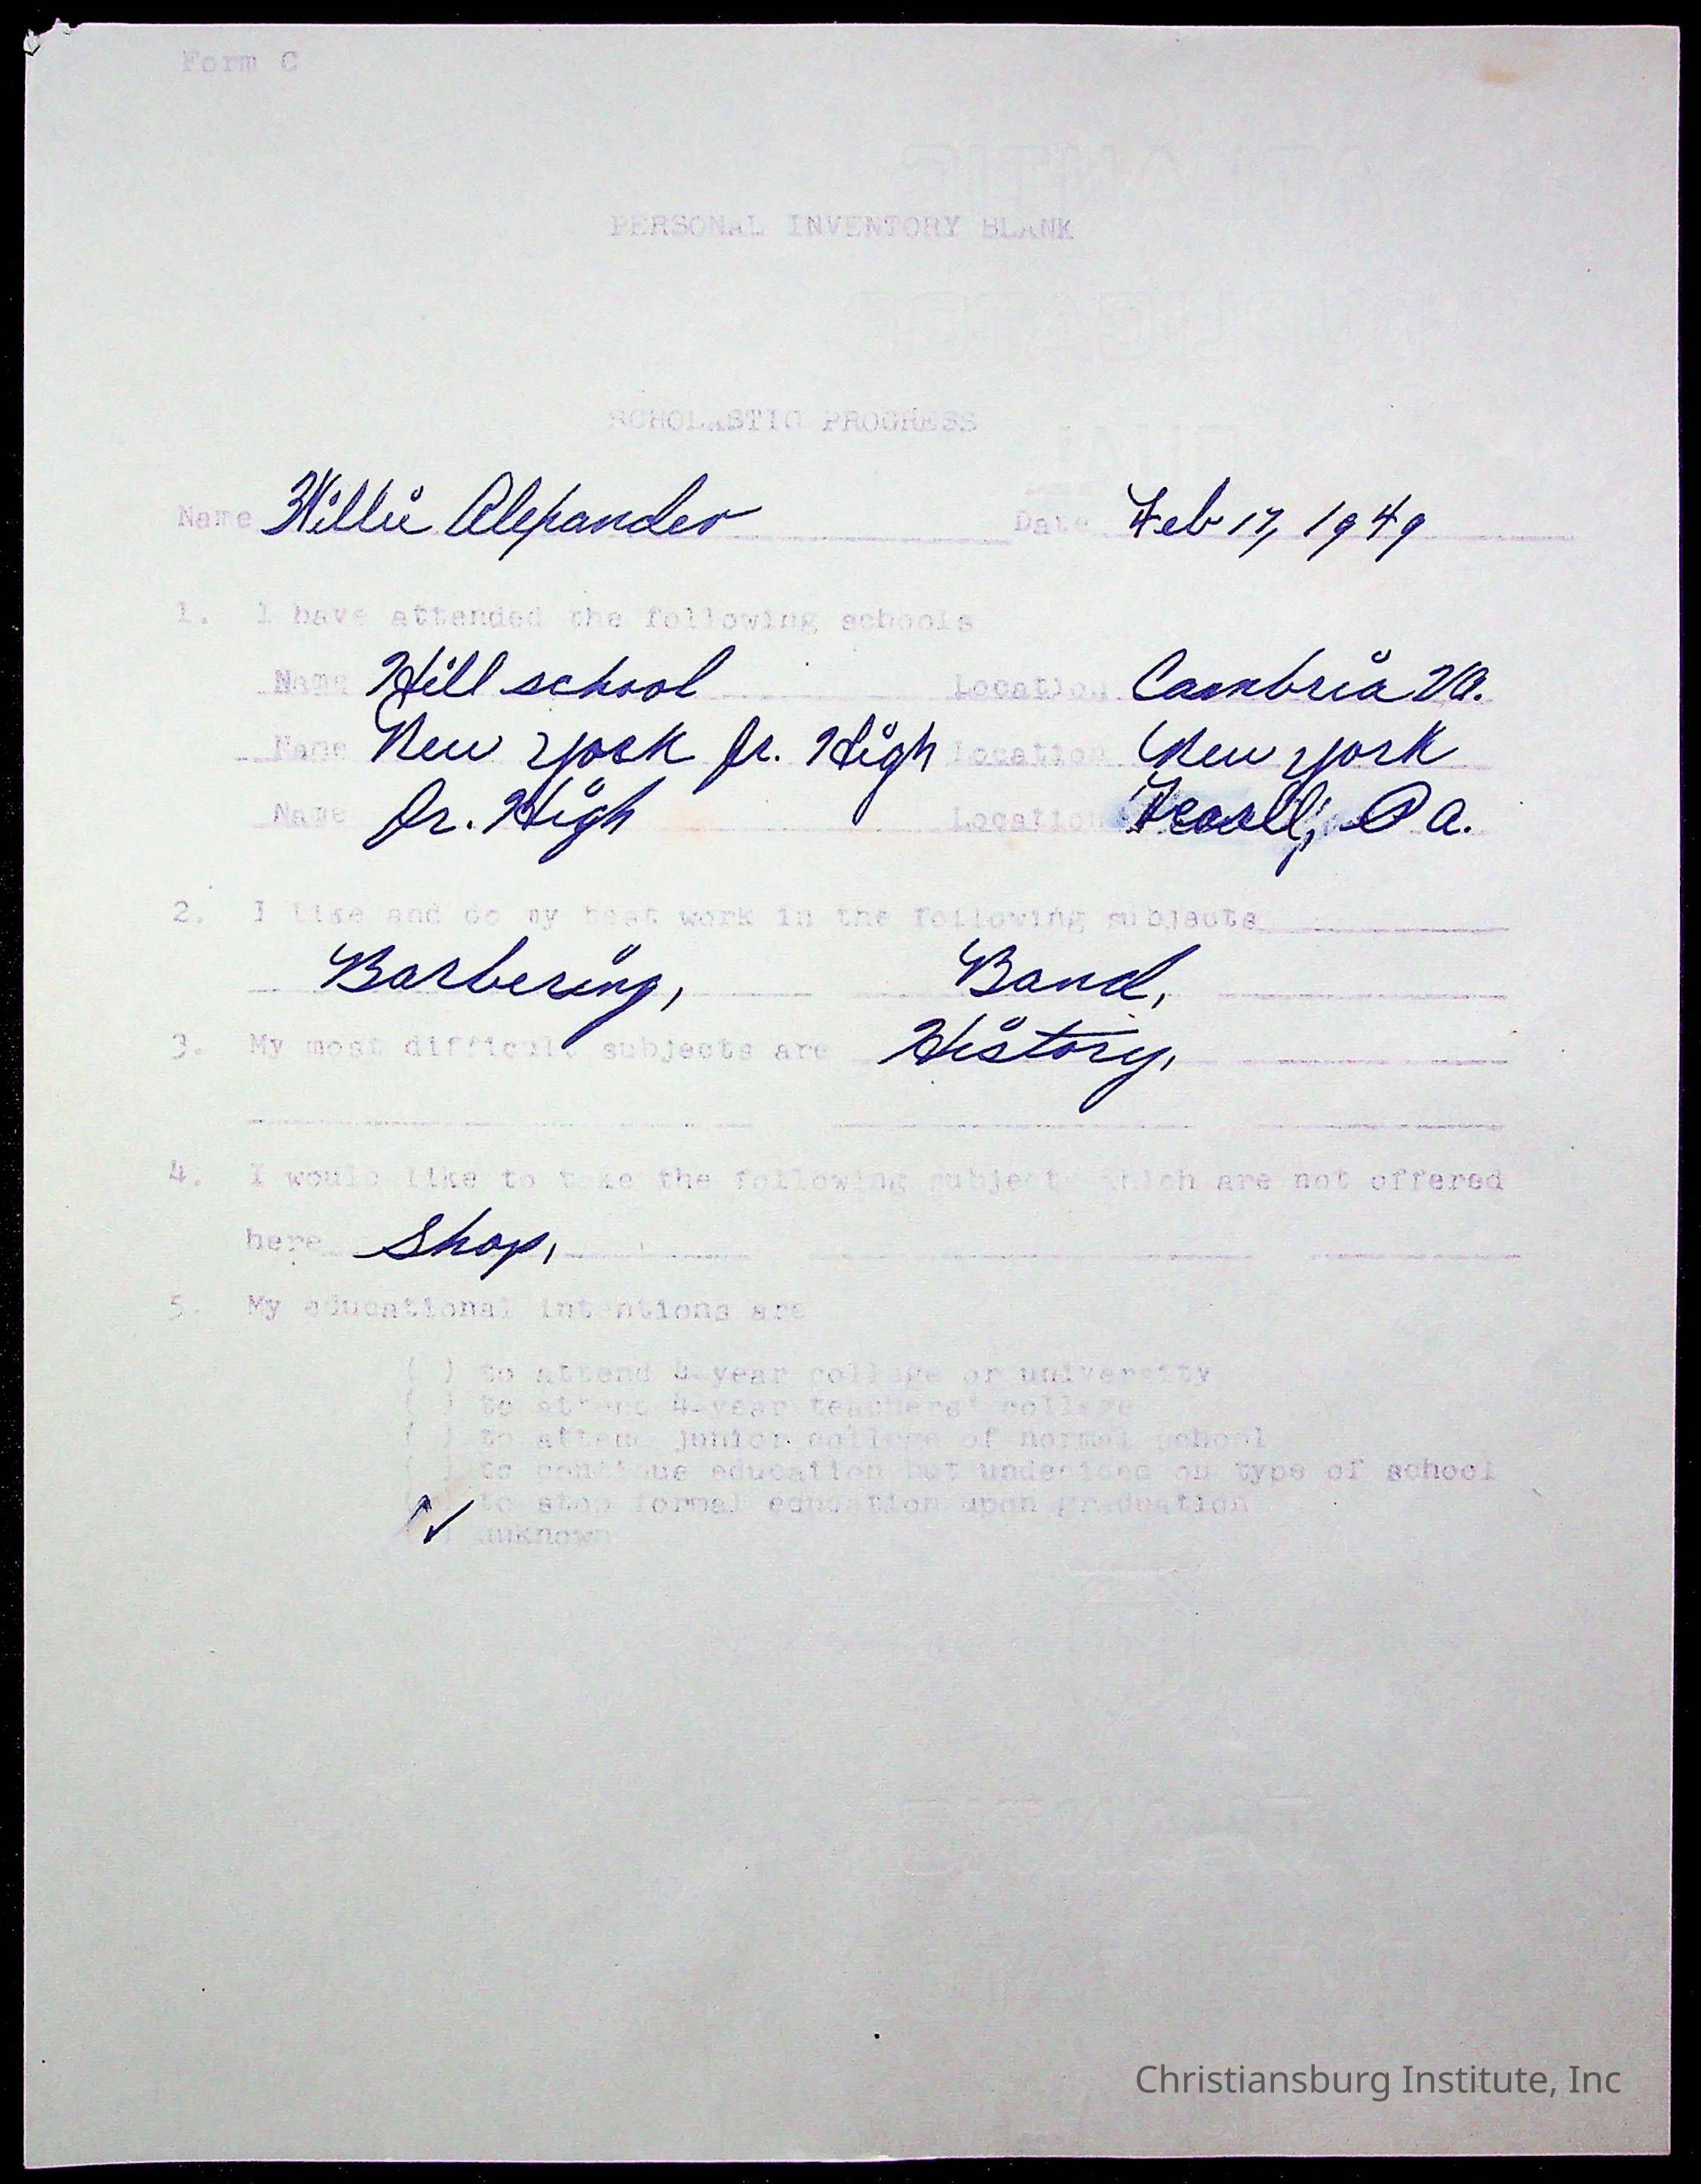 Form C
PERSONAL INVENTORY BLANK
SCHOLASTIC PROGRESS
Name Willie Alexander Date Feb 17, 1949
1. I have attended the following schools
Name Hill school Location Cambria Va.
Name New york Jr. High Location New york
Name Jr. High Location Pa.
2. I like and do my best work in the following subjects
Barbering, Band,
3. My most difficult subjects are History,
4. I would like to take the following subject which are not offered
here Shop,
5. My educational intentions are
( ) to attend 4-year college or university
( ) to attend 4-year teachers' college
( ) to attend junior college of normal school
( ) to continue education but undecided on type of school
to stop formal education upon graduation
✓ unknown
Christiansburg Institute, Inc